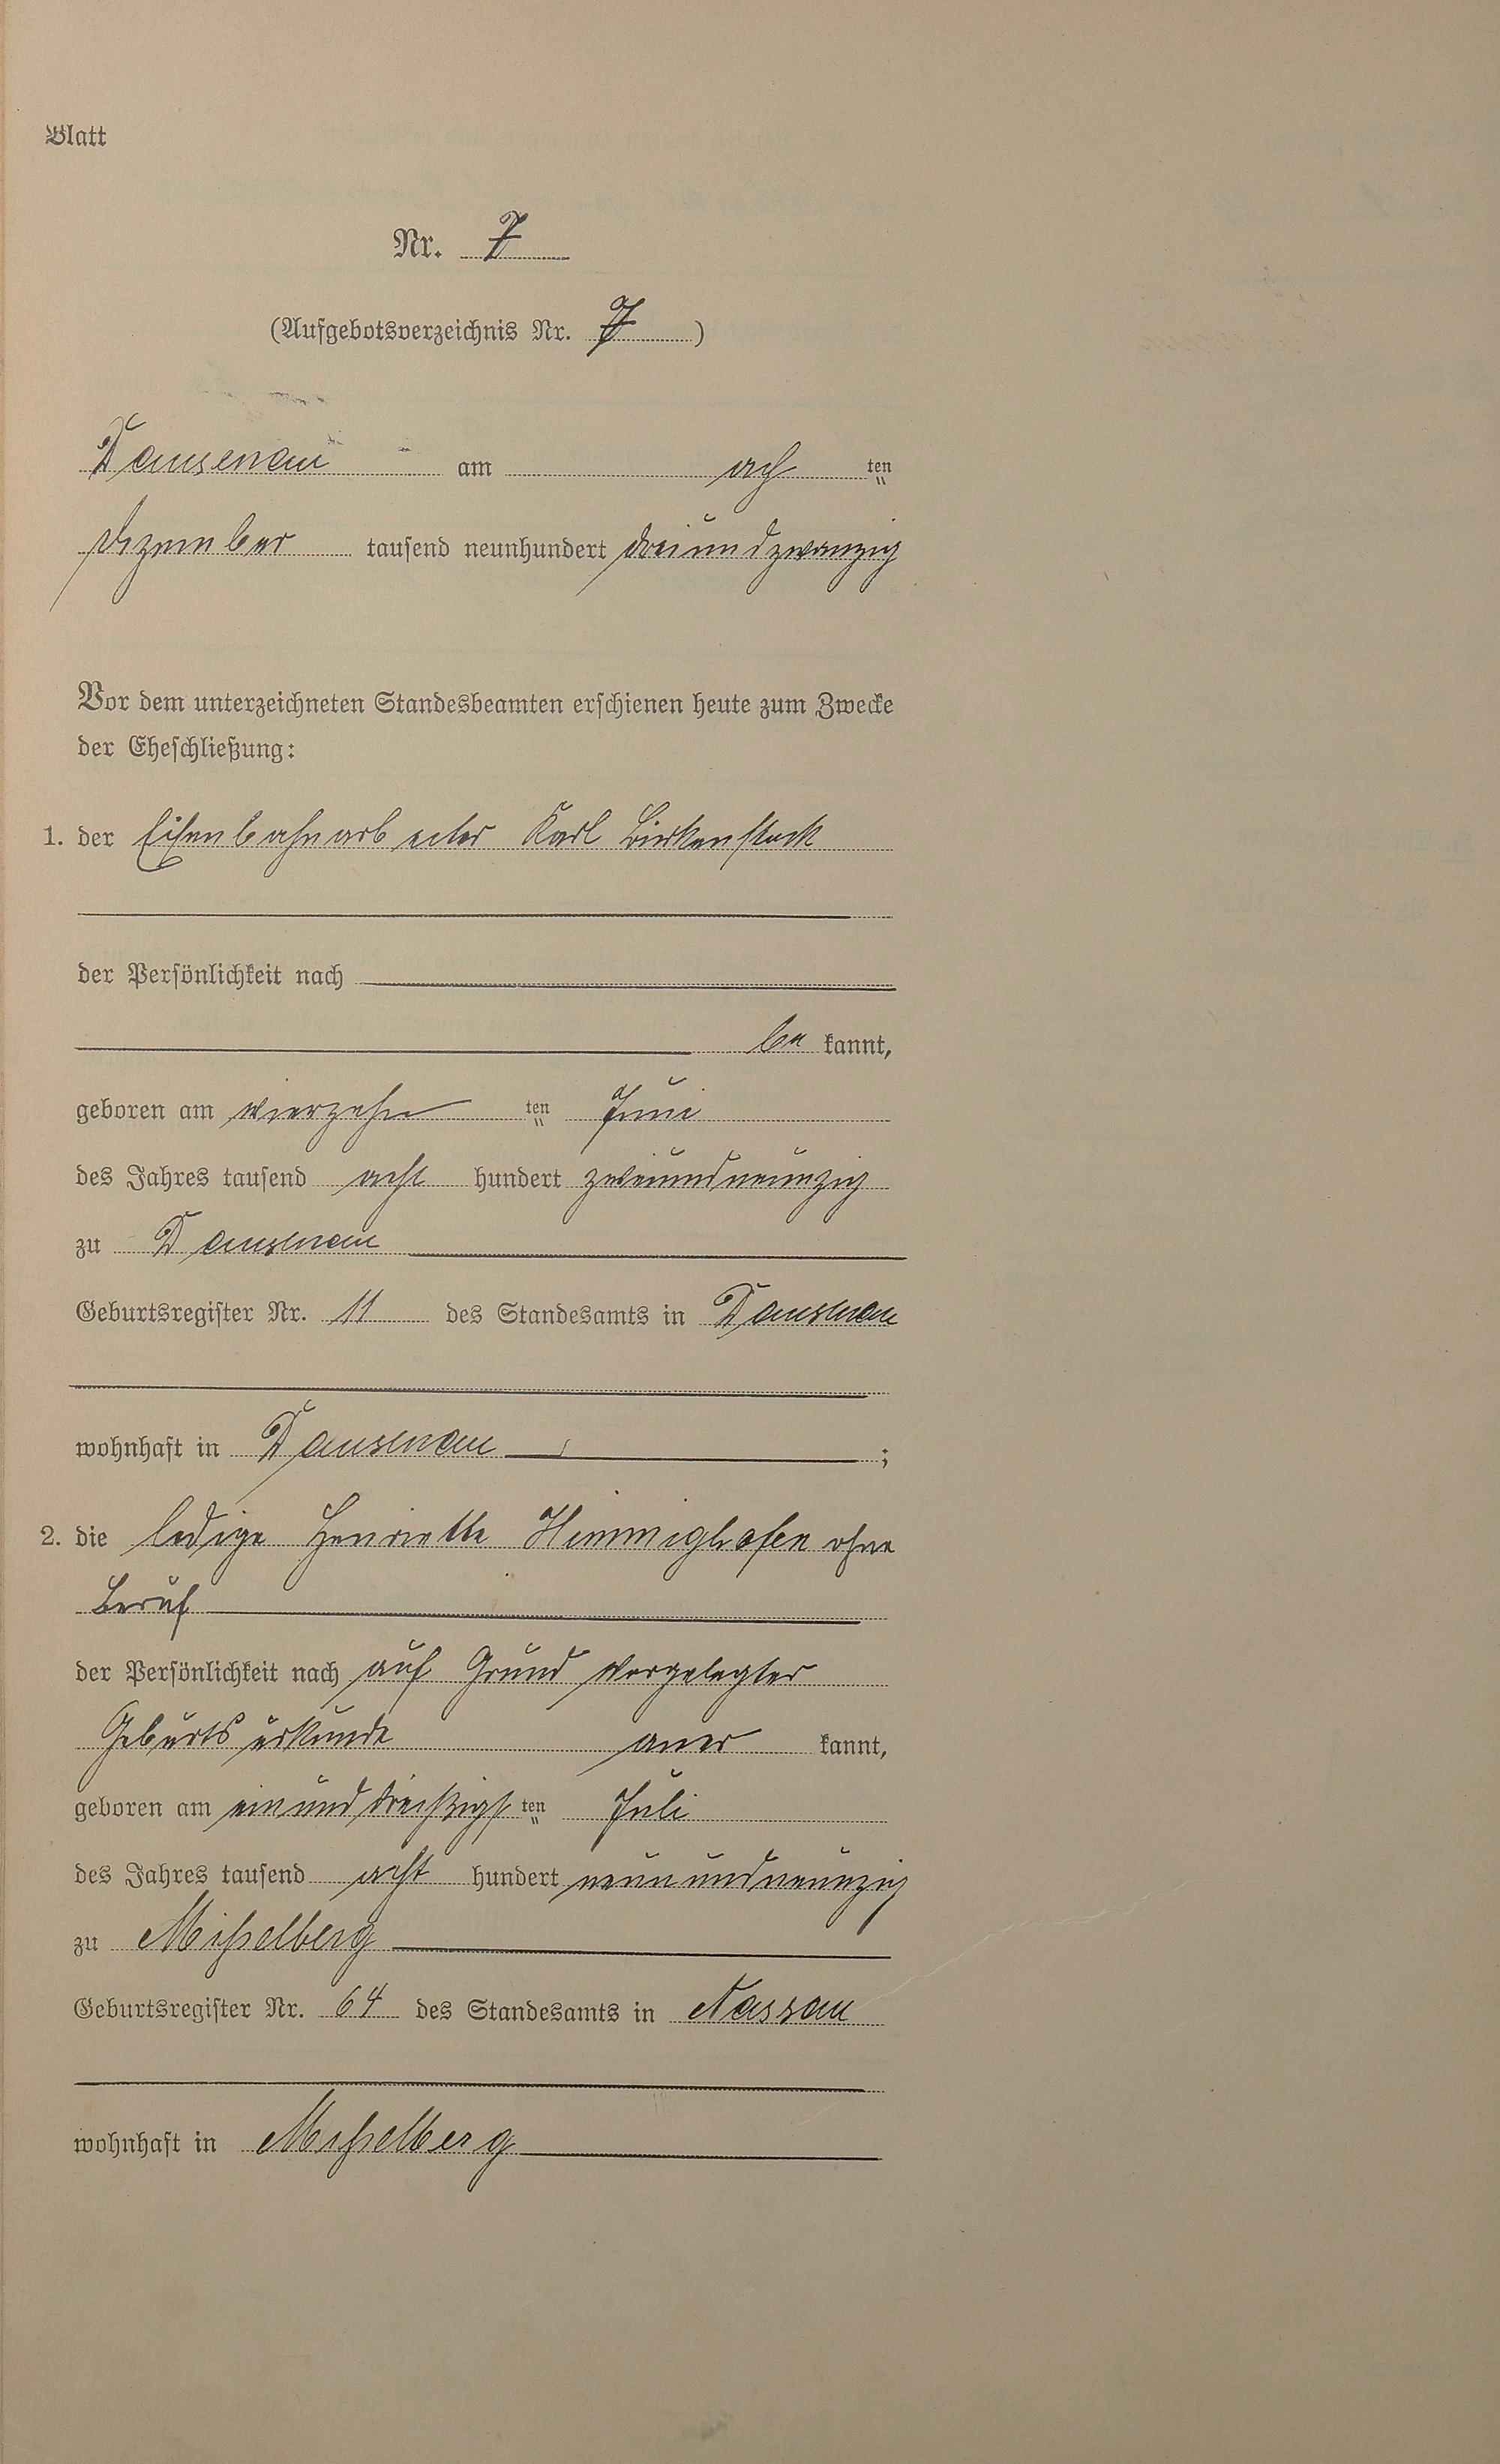 Blatt
Nr. 7
(Aufgebotsverzeichnis Nr. 7 )
Dausenau am ach ten
Dezember tausend neunhundert dreiundzwanzig
Vor dem unterzeichneten Standesbeamten erschienen heute zum Zwecke
der Eheschließung:
1. der Eisenbahnarbeiter Karl Birkenstock
der Persönlichkeit nach
be kannt,
geboren am vierzehn ten Juni
des Jahres tausend acht hundert zweiundneunzig
zu Dausenau
Geburtsregister Nr. 11 des Standesamts in Dausenau
wohnhaft in Dausenau ;
2. die ledige Henriette Himmighofen ohne
Beruf
der Persönlichkeit nach auf Grund vorgelegter
Geburtsurkunde aner kannt,
geboren am einunddreißigs ten Juli
des Jahres tausend acht hundert neunundneunzig
zu Misselberg
Geburtsregister Nr. 64 des Standesamts in Nassau
wohnhaft in Misselberg